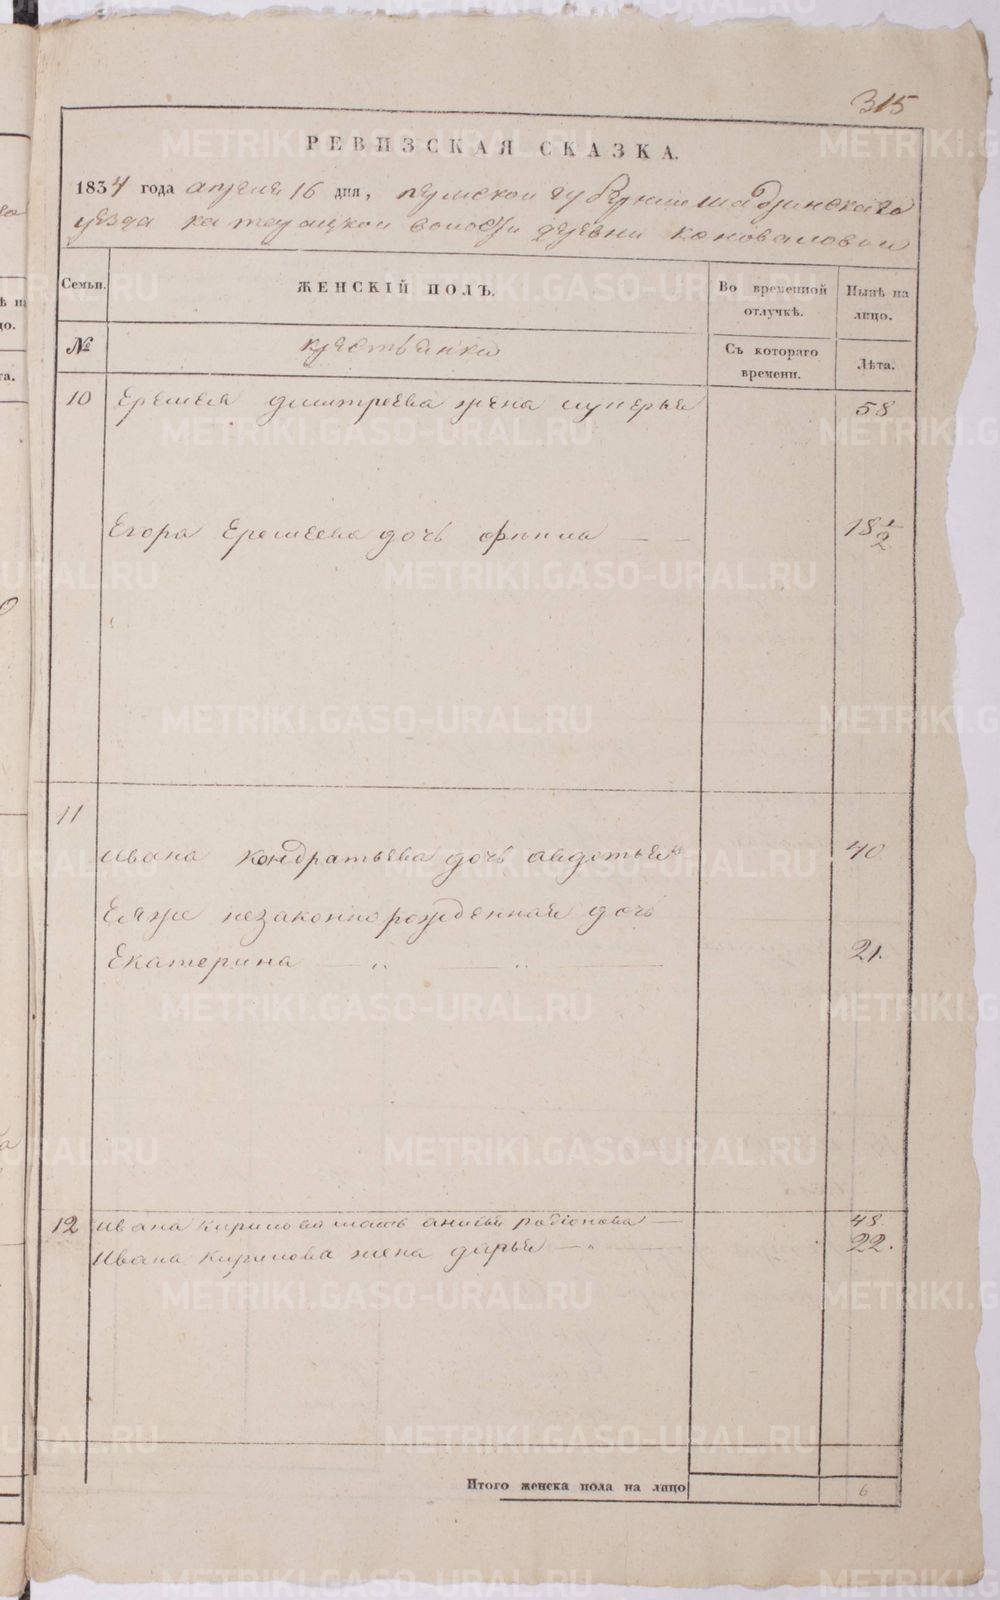 315
РЕВИЗСКАЯ СКАЗКА.
1834 года апреля 16 дня, пермской губернии шадринскаго
уезда катайцкой волости деревни коноваловой
Семьи. ЖЕНСКІЙ ПОЛЪ. Во временной отлучкѣ. Нынѣ на лицо.
№ крестьянки Съ котораго времени. Лѣта.
10 Еремея дмитреева жена лукерья 58
Егора Еремеева дочь офимиа 18 1/2
11
Ивана кондратьева дочь авдотья 40
Еяже незаконнорожденная дочь
Екатерина 21.
12 Ивана Кирилова мать анисья родіонова 48
Ивана Кирилова жена дарья 22.
Итого женска пола на лицо 6
METRIKI.GASO-URAL.RU